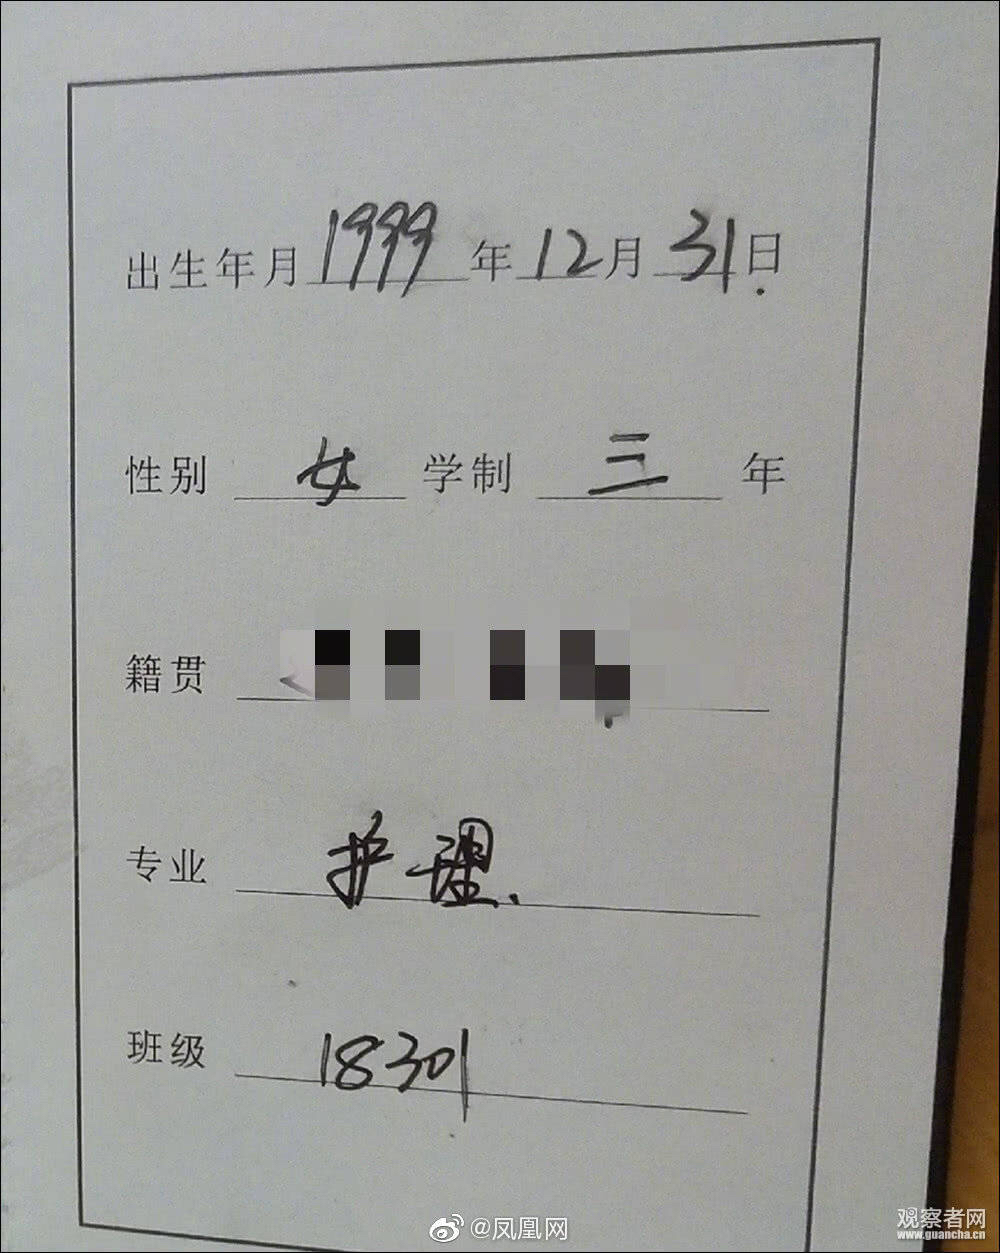 出生年月 1999 年 12 月 31 日
性别 女 学制 三 年
籍贯
专业 护理
班级 18301
@凤凰网
观察者网
www.guancha.cn